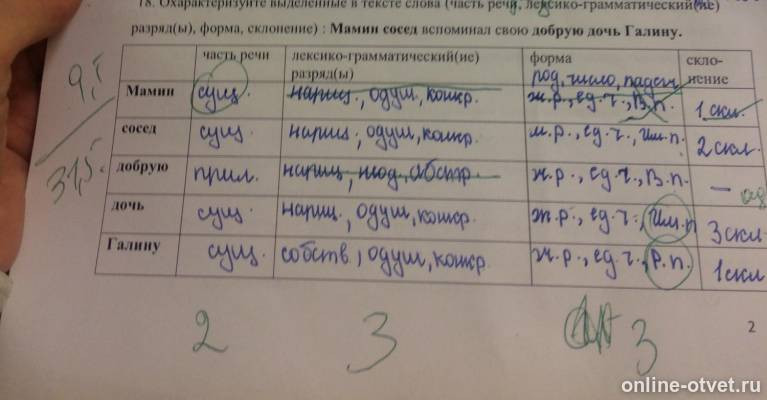 18. Охарактеризуйте выделенные в тексте слова (часть речи, лексико-грамматический(ие)
разряд(ы), форма, склонение) : Мамин сосед вспоминал свою добрую дочь Галину.
часть речи лексико-грамматический(ие) разряд(ы) форма род, число, падеж скло-нение
Мамин сущ. нариц., одуш, конкр. ж.р., ед.ч., В.п. 1 скл.
сосед сущ. нариц., одуш, конкр. м.р., ед.ч., Им.п. 2 скл.
добрую прил. нариц, абстр. ж.р., ед.ч., В.п. –
дочь сущ. нариц., одуш, конкр. ж.р., ед.ч., Им.п 3 скл
Галину сущ. собств, одуш, конкр. ж.р., ед.ч., Р.п. 1 скл
9,5
31,5
2 3 3
2
online-otvet.ru